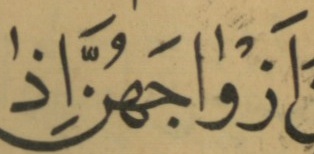 اَزْوَاجَهُنَّ اِذَا